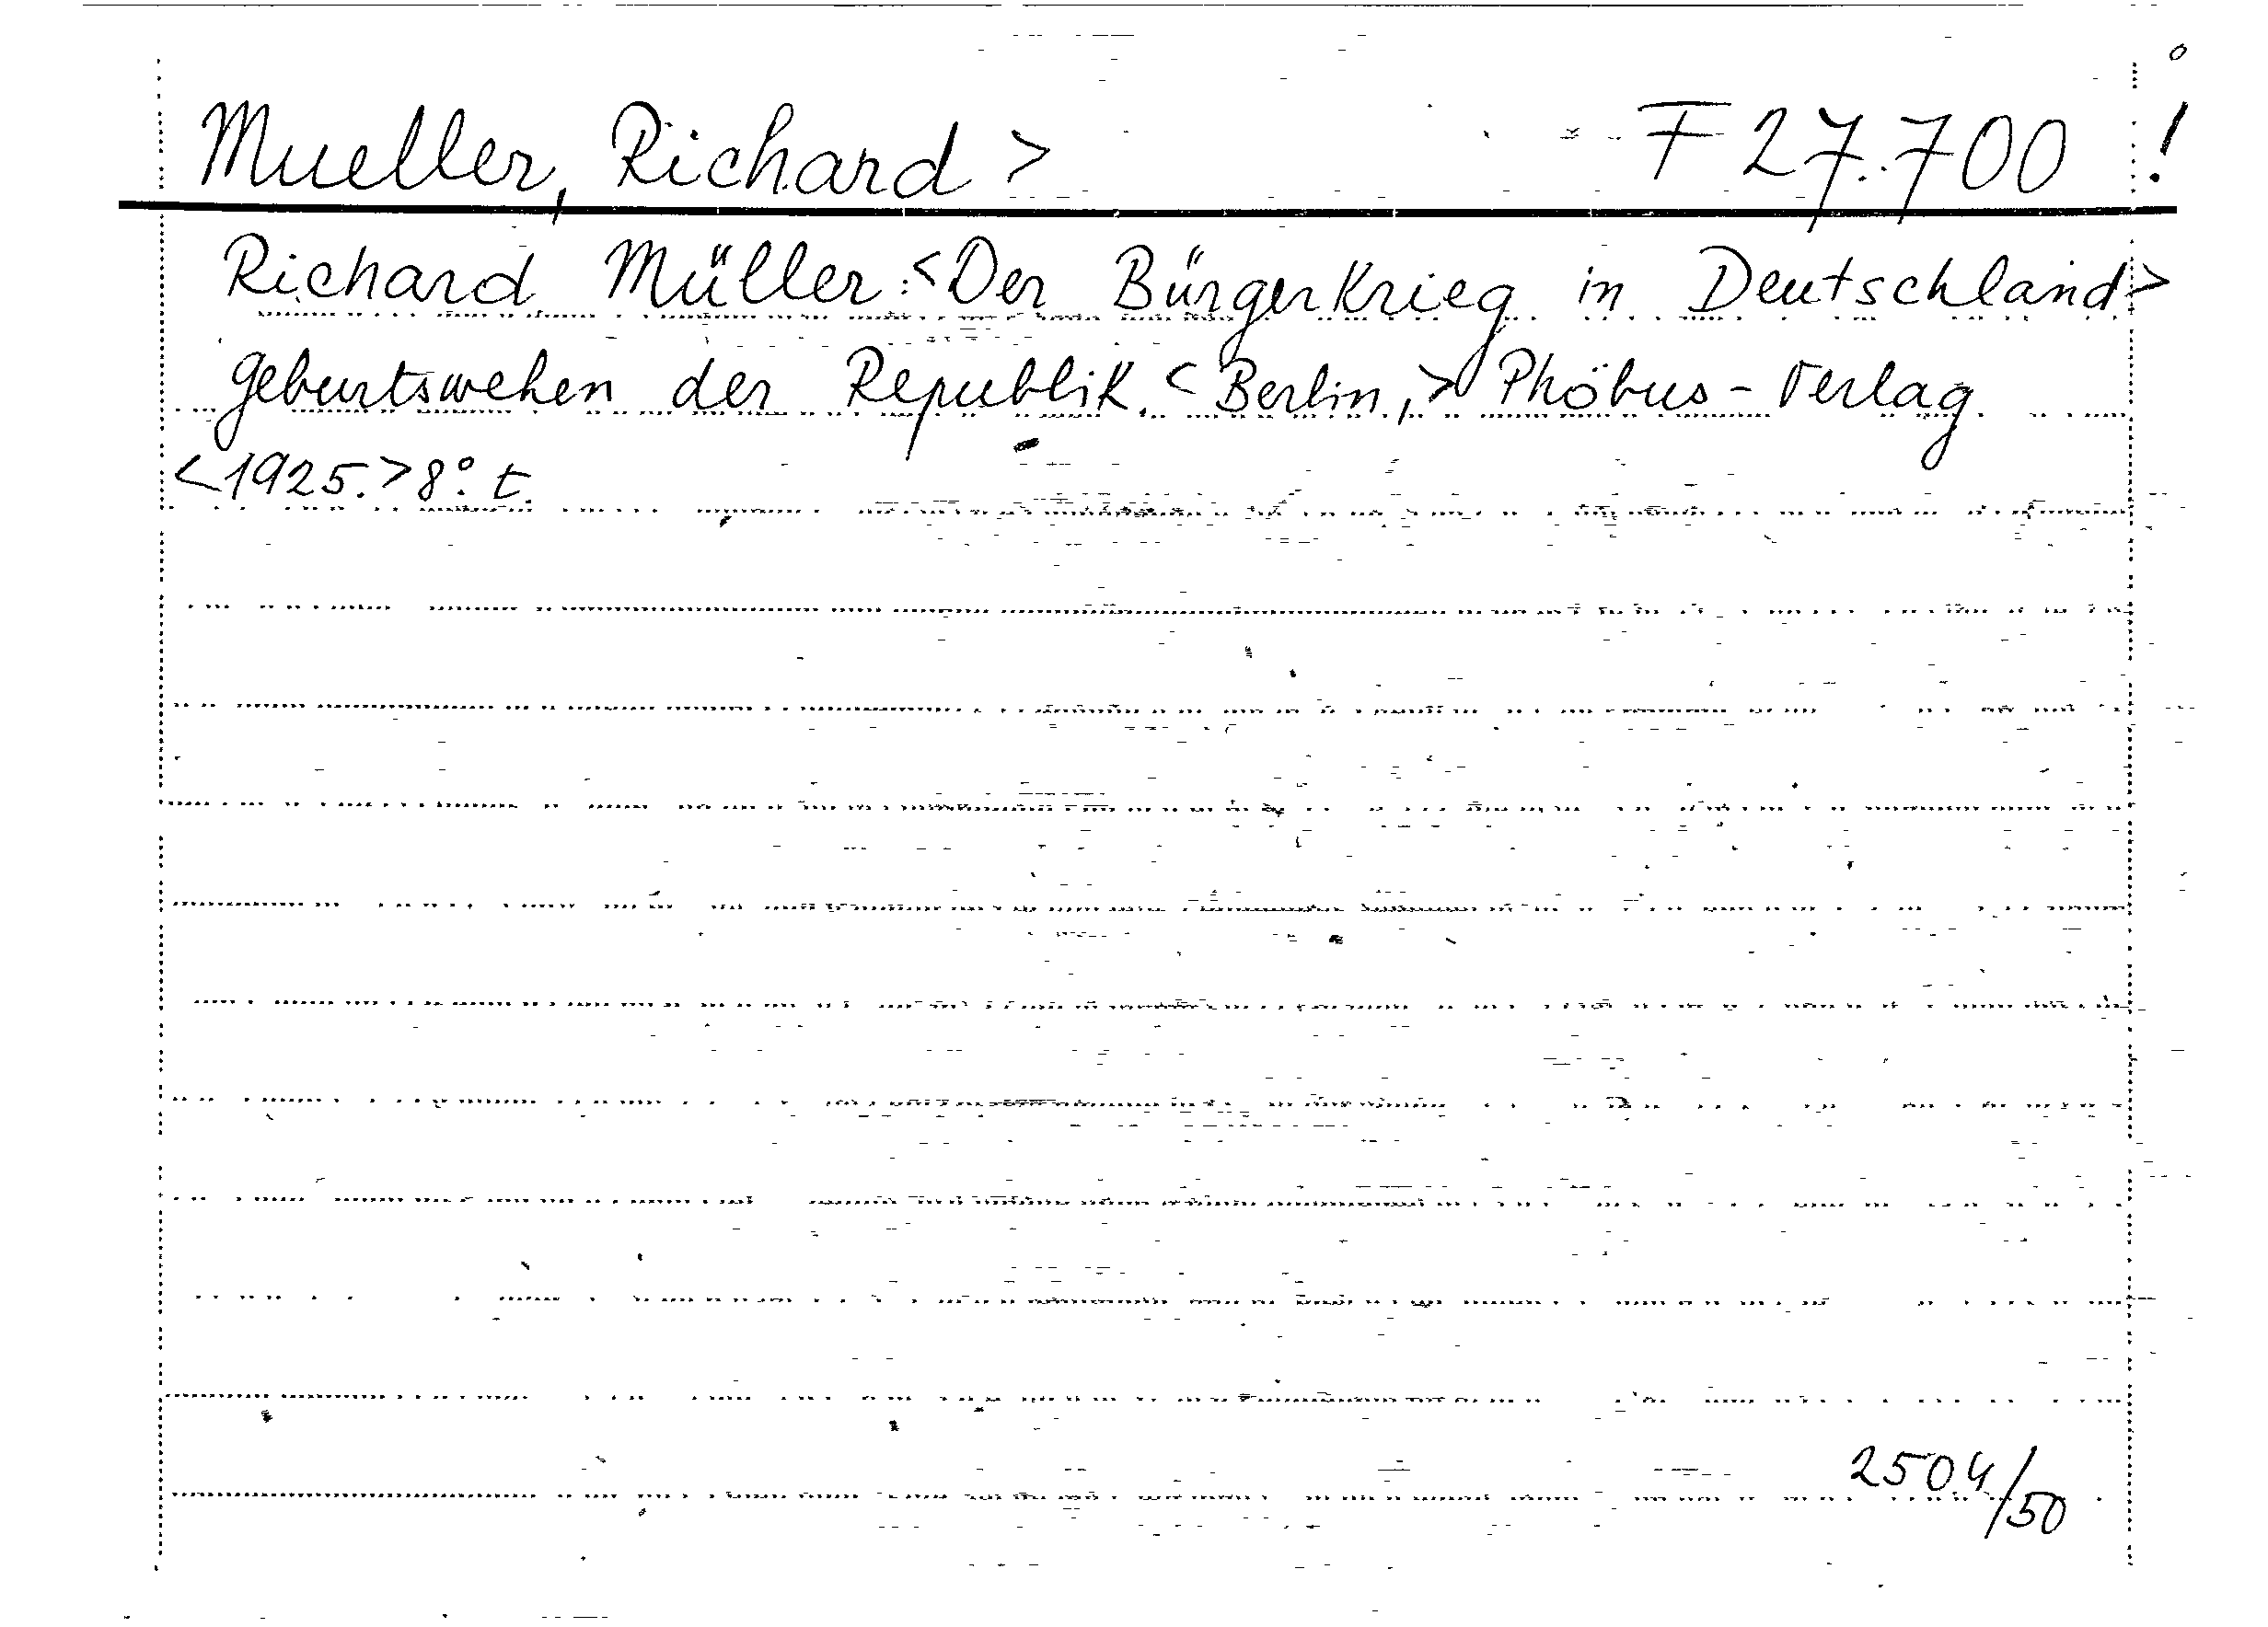 Mueller, Richard > F 27.700 !
Richard Müller: <Der Bürgerkrieg in Deutschland>
Geburtswehen der Republik. <Berlin,> Phöbus-Verlag
<1925.> 8°. t.
2504/50